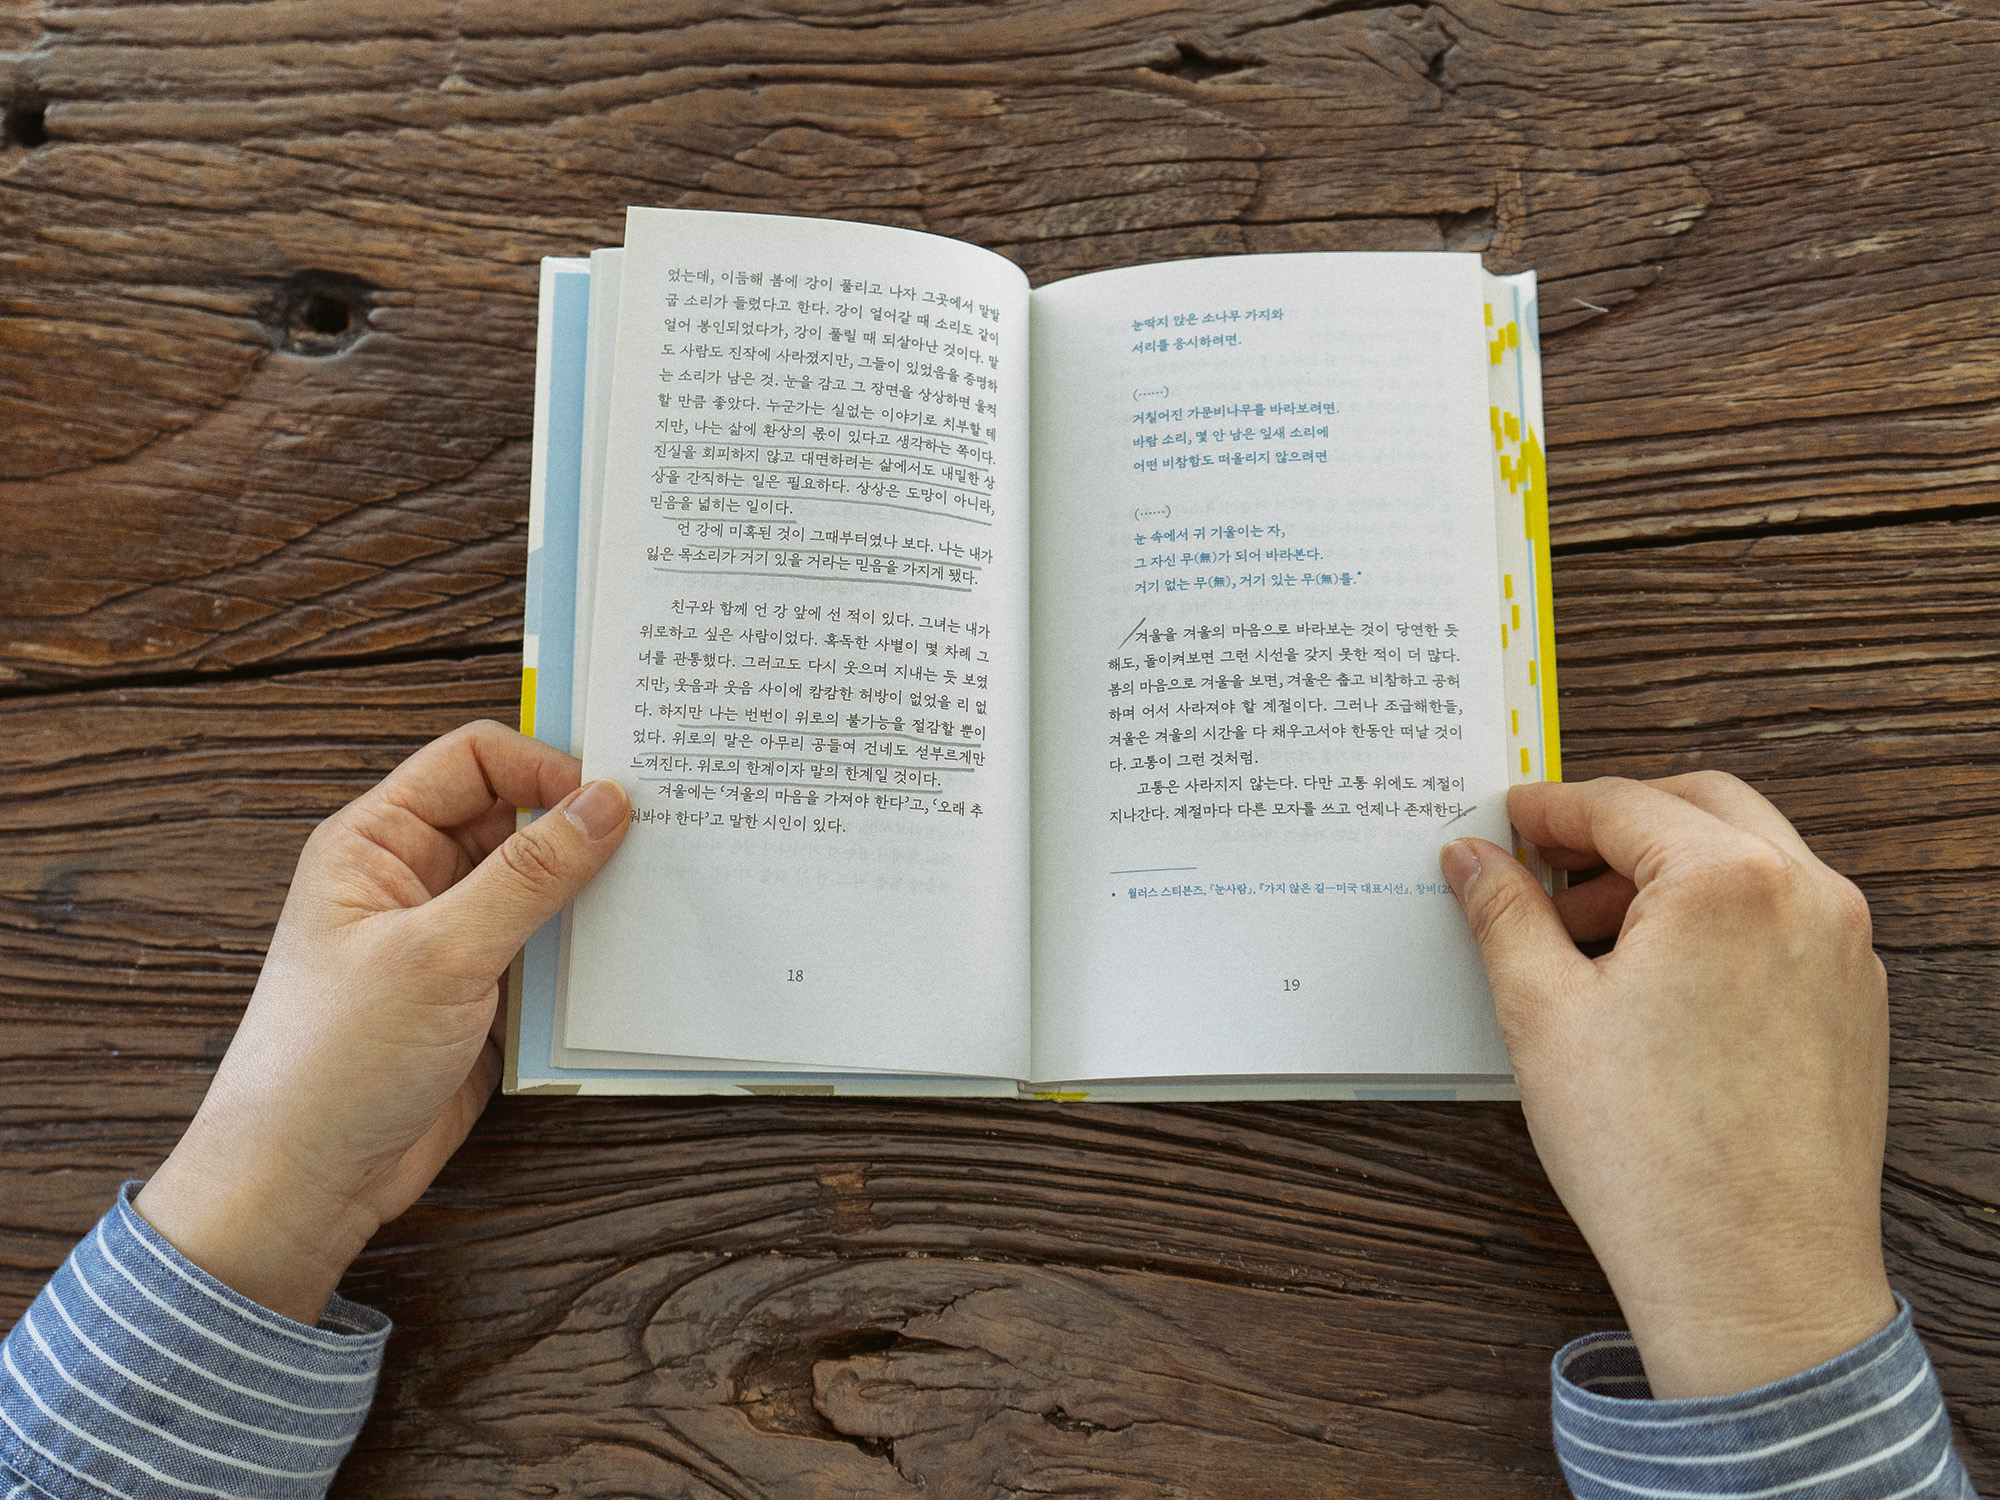 었는데, 이듬해 봄에 강이 풀리고 나자 그곳에서 말발
굽 소리가 들렸다고 한다. 강이 얼어갈 때 소리도 같이
얼어 봉인되었다가, 강이 풀릴 때 되살아난 것이다. 말
도 사람도 진작에 사라졌지만, 그들이 있었음을 증명하
는 소리가 남은 것. 눈을 감고 그 장면을 상상하면 울컥
할 만큼 좋았다. 누군가는 실없는 이야기로 치부할 테
지만, 나는 삶에 환상의 몫이 있다고 생각하는 쪽이다.
진실을 회피하지 않고 대면하려는 삶에서도 내밀한 상
상을 간직하는 일은 필요하다. 상상은 도망이 아니라,
믿음을 넓히는 일이다.
언 강에 미혹된 것이 그때부터였나 보다. 나는 내가
잃은 목소리가 거기 있을 거라는 믿음을 가지게 됐다.
친구와 함께 언 강 앞에 선 적이 있다. 그녀는 내가
위로하고 싶은 사람이었다. 혹독한 사별이 몇 차례 그
녀를 관통했다. 그러고도 다시 웃으며 지내는 듯 보였
지만, 웃음과 웃음 사이에 캄캄한 허방이 없었을 리 없
다. 하지만 나는 번번이 위로의 불가능을 절감할 뿐이
었다. 위로의 말은 아무리 공들여 건네도 섣부르게만
느껴진다. 위로의 한계이자 말의 한계일 것이다.
겨울에는 ‘겨울의 마음을 가져야 한다’고, ‘오래 추
워봐야 한다’고 말한 시인이 있다.
18
눈딱지 앉은 소나무 가지와
서리를 응시하려면.
(……)
거칠어진 가문비나무를 바라보려면.
바람 소리, 몇 안 남은 잎새 소리에
어떤 비참함도 떠올리지 않으려면
(……)
눈 속에서 귀 기울이는 자,
그 자신 무(無)가 되어 바라본다.
거기 없는 무(無), 거기 있는 무(無)를.•
겨울을 겨울의 마음으로 바라보는 것이 당연한 듯
해도, 돌이켜보면 그런 시선을 갖지 못한 적이 더 많다.
봄의 마음으로 겨울을 보면, 겨울은 춥고 비참하고 공허
하며 어서 사라져야 할 계절이다. 그러나 조급해한들,
겨울은 겨울의 시간을 다 채우고서야 한동안 떠날 것이
다. 고통이 그런 것처럼.
고통은 사라지지 않는다. 다만 고통 위에도 계절이
지나간다. 계절마다 다른 모자를 쓰고 언제나 존재한다.
• 월러스 스티븐즈, 「눈사람」, 『가지 않은 길—미국 대표시선』, 창비(20
19